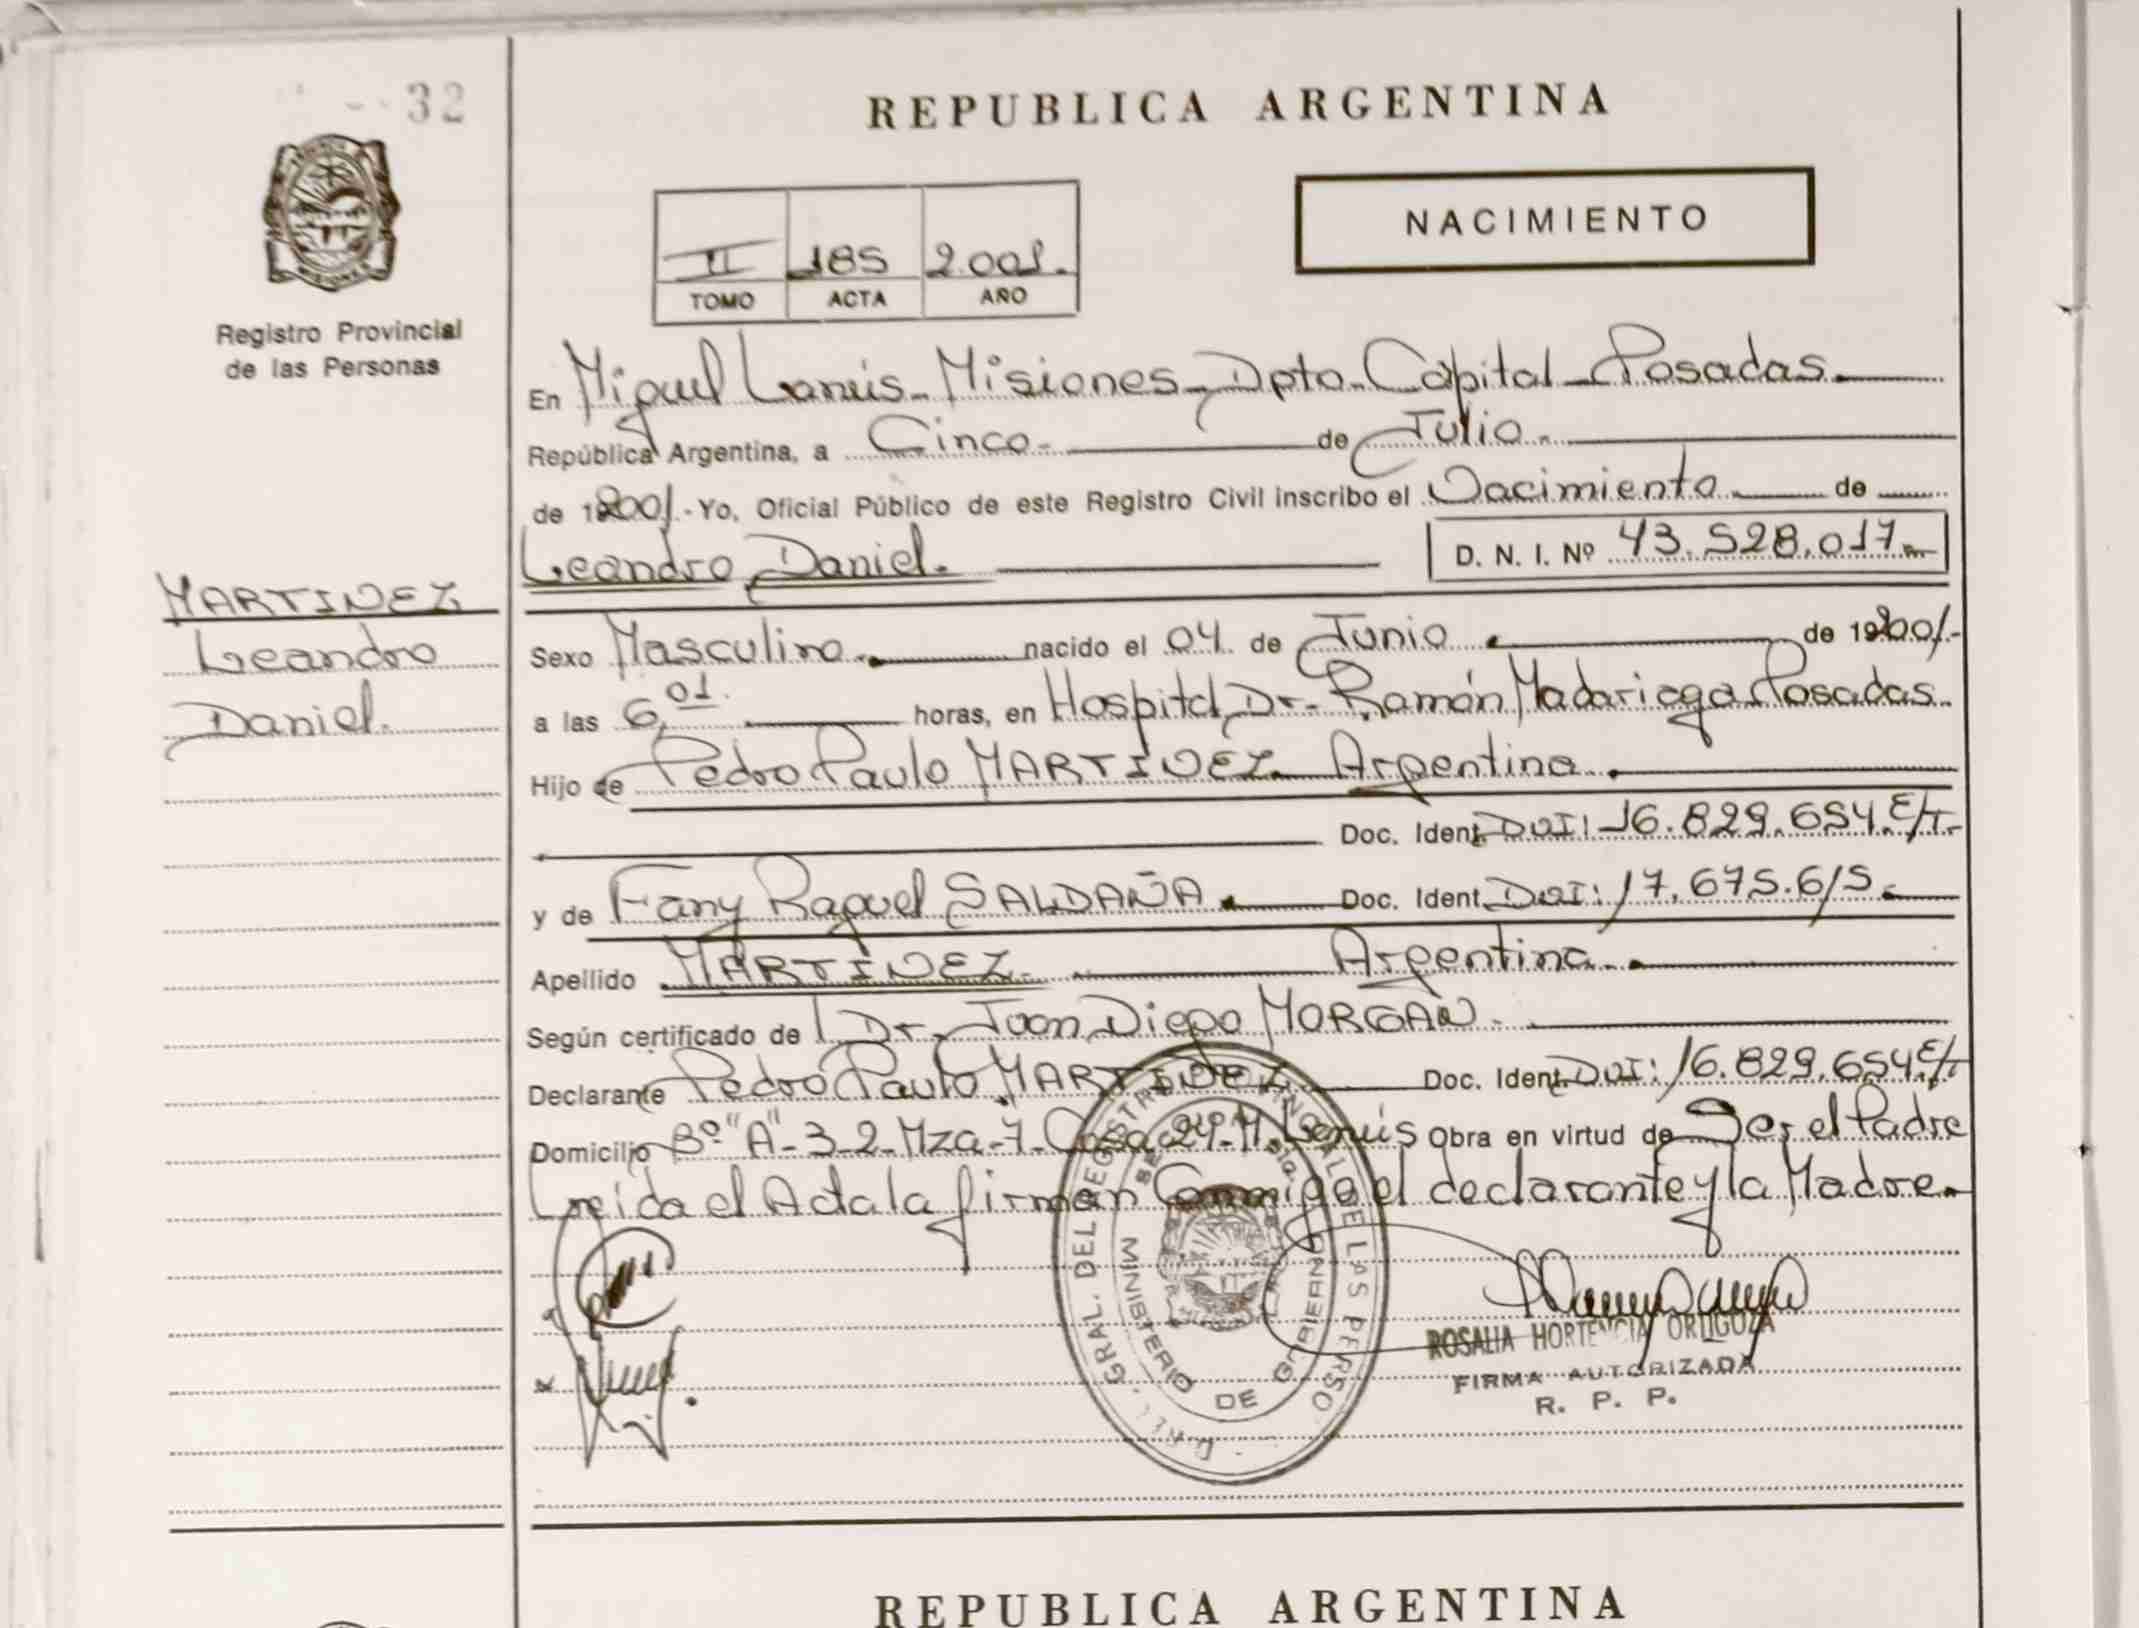 32
REPUBLICA ARGENTINA
NACIMIENTO
II 185 2.001.
TOMO ACTA AÑO
Registro Provincial
de las Personas
En Miguel Lanús - Misiones - Dpto. Capital - Posadas.
República Argentina, a Cinco. de Julio.
de 2001.- Yo, Oficial Público de este Registro Civil inscribo el Nacimiento de
Leandro Daniel. D. N. I. Nº 43.528.017
MARTINEZ
Leandro
Daniel.
Sexo Masculino. nacido el 04 de Junio de 2001.-
a las 6,01. horas, en Hospital Dr. Ramón Madariaga Posadas.
Hijo de Pedro Paulo MARTINEZ Argentina.
Doc. Ident. DNI: 16.829.654 E/T.
y de Fany Raquel SALDAÑA. Doc. Ident. DNI: 17.675.615.
Apellido MARTINEZ. Argentina.
Según certificado de Dr. Juan Diego MORGAN.
Declarante Pedro Paulo MARTINEZ Doc. Ident. DNI: 16.829.654 E/T
Domicilio Bº "A"-3-2-Mza-7-Casa 24-M. Lanús Obra en virtud de Ser el Padre
Leída el Acta la firman Conmigo el declarante y la Madre.
GRAL. DEL REGISTRO PROVINCIAL DE LAS PERSO
MINISTERIO DE GOBIERNO
ROSALIA HORTENCIA ORTIGOZA
FIRMA AUTORIZADA
R. P. P.
REPUBLICA ARGENTINA